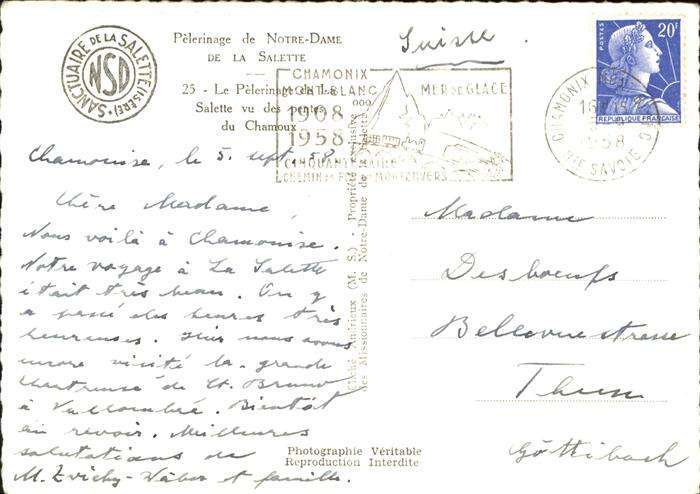 SANCTUAIRE DE LA SALETTE (ISÈRE)
NSD
Pèlerinage de NOTRE-DAME
DE LA SALETTE
25 - Le Pèlerinage de La
Salette vu des pentes
du Chamoux
Suisse.
CHAMONIX
MONT-BLANC MER DE GLACE
1908
1958
CINQUANTENAIRE
CHEMIN DE FER MONTENVERS
POSTES
20F
REPUBLIQUE FRANÇAISE
CHAMONIX
HTE SAVOIE
Chamonise, le 5. sept. 58
Chère Madame,
Nous voilà à Chamonise.
Notre voyage à La Salette
était très beau. On y
a passé des heures très
heureuses. Hier nous avons
encore visité la grande
Chartreuse de St. Bruno
à Vallombré. Bientôt
au revoir. Meilleures
salutations de
M. Zvichy-Wäber et famille.
Cliché Antérieux (M. S.) - Propriété exclusive
des Missionnaires de Notre-Dame de la Salette
Photographie Véritable
Reproduction Interdite
Madame
Desboeufs
Bellevuestrasse
Thun
Göttibach